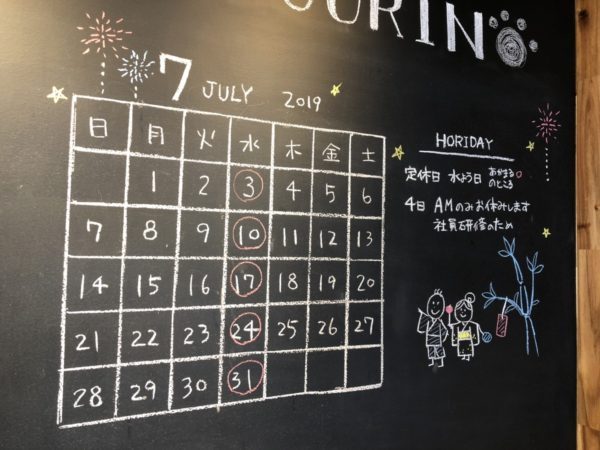 7 JULY 2019
日 月 火 水 木 金 土
1 2 3 4 5 6
7 8 9 10 11 12 13
14 15 16 17 18 19 20
21 22 23 24 25 26 27
28 29 30 31
HORIDAY
定休日 水よう日 あかまる○のところ
4日 AMのみお休みします
社員研修のため